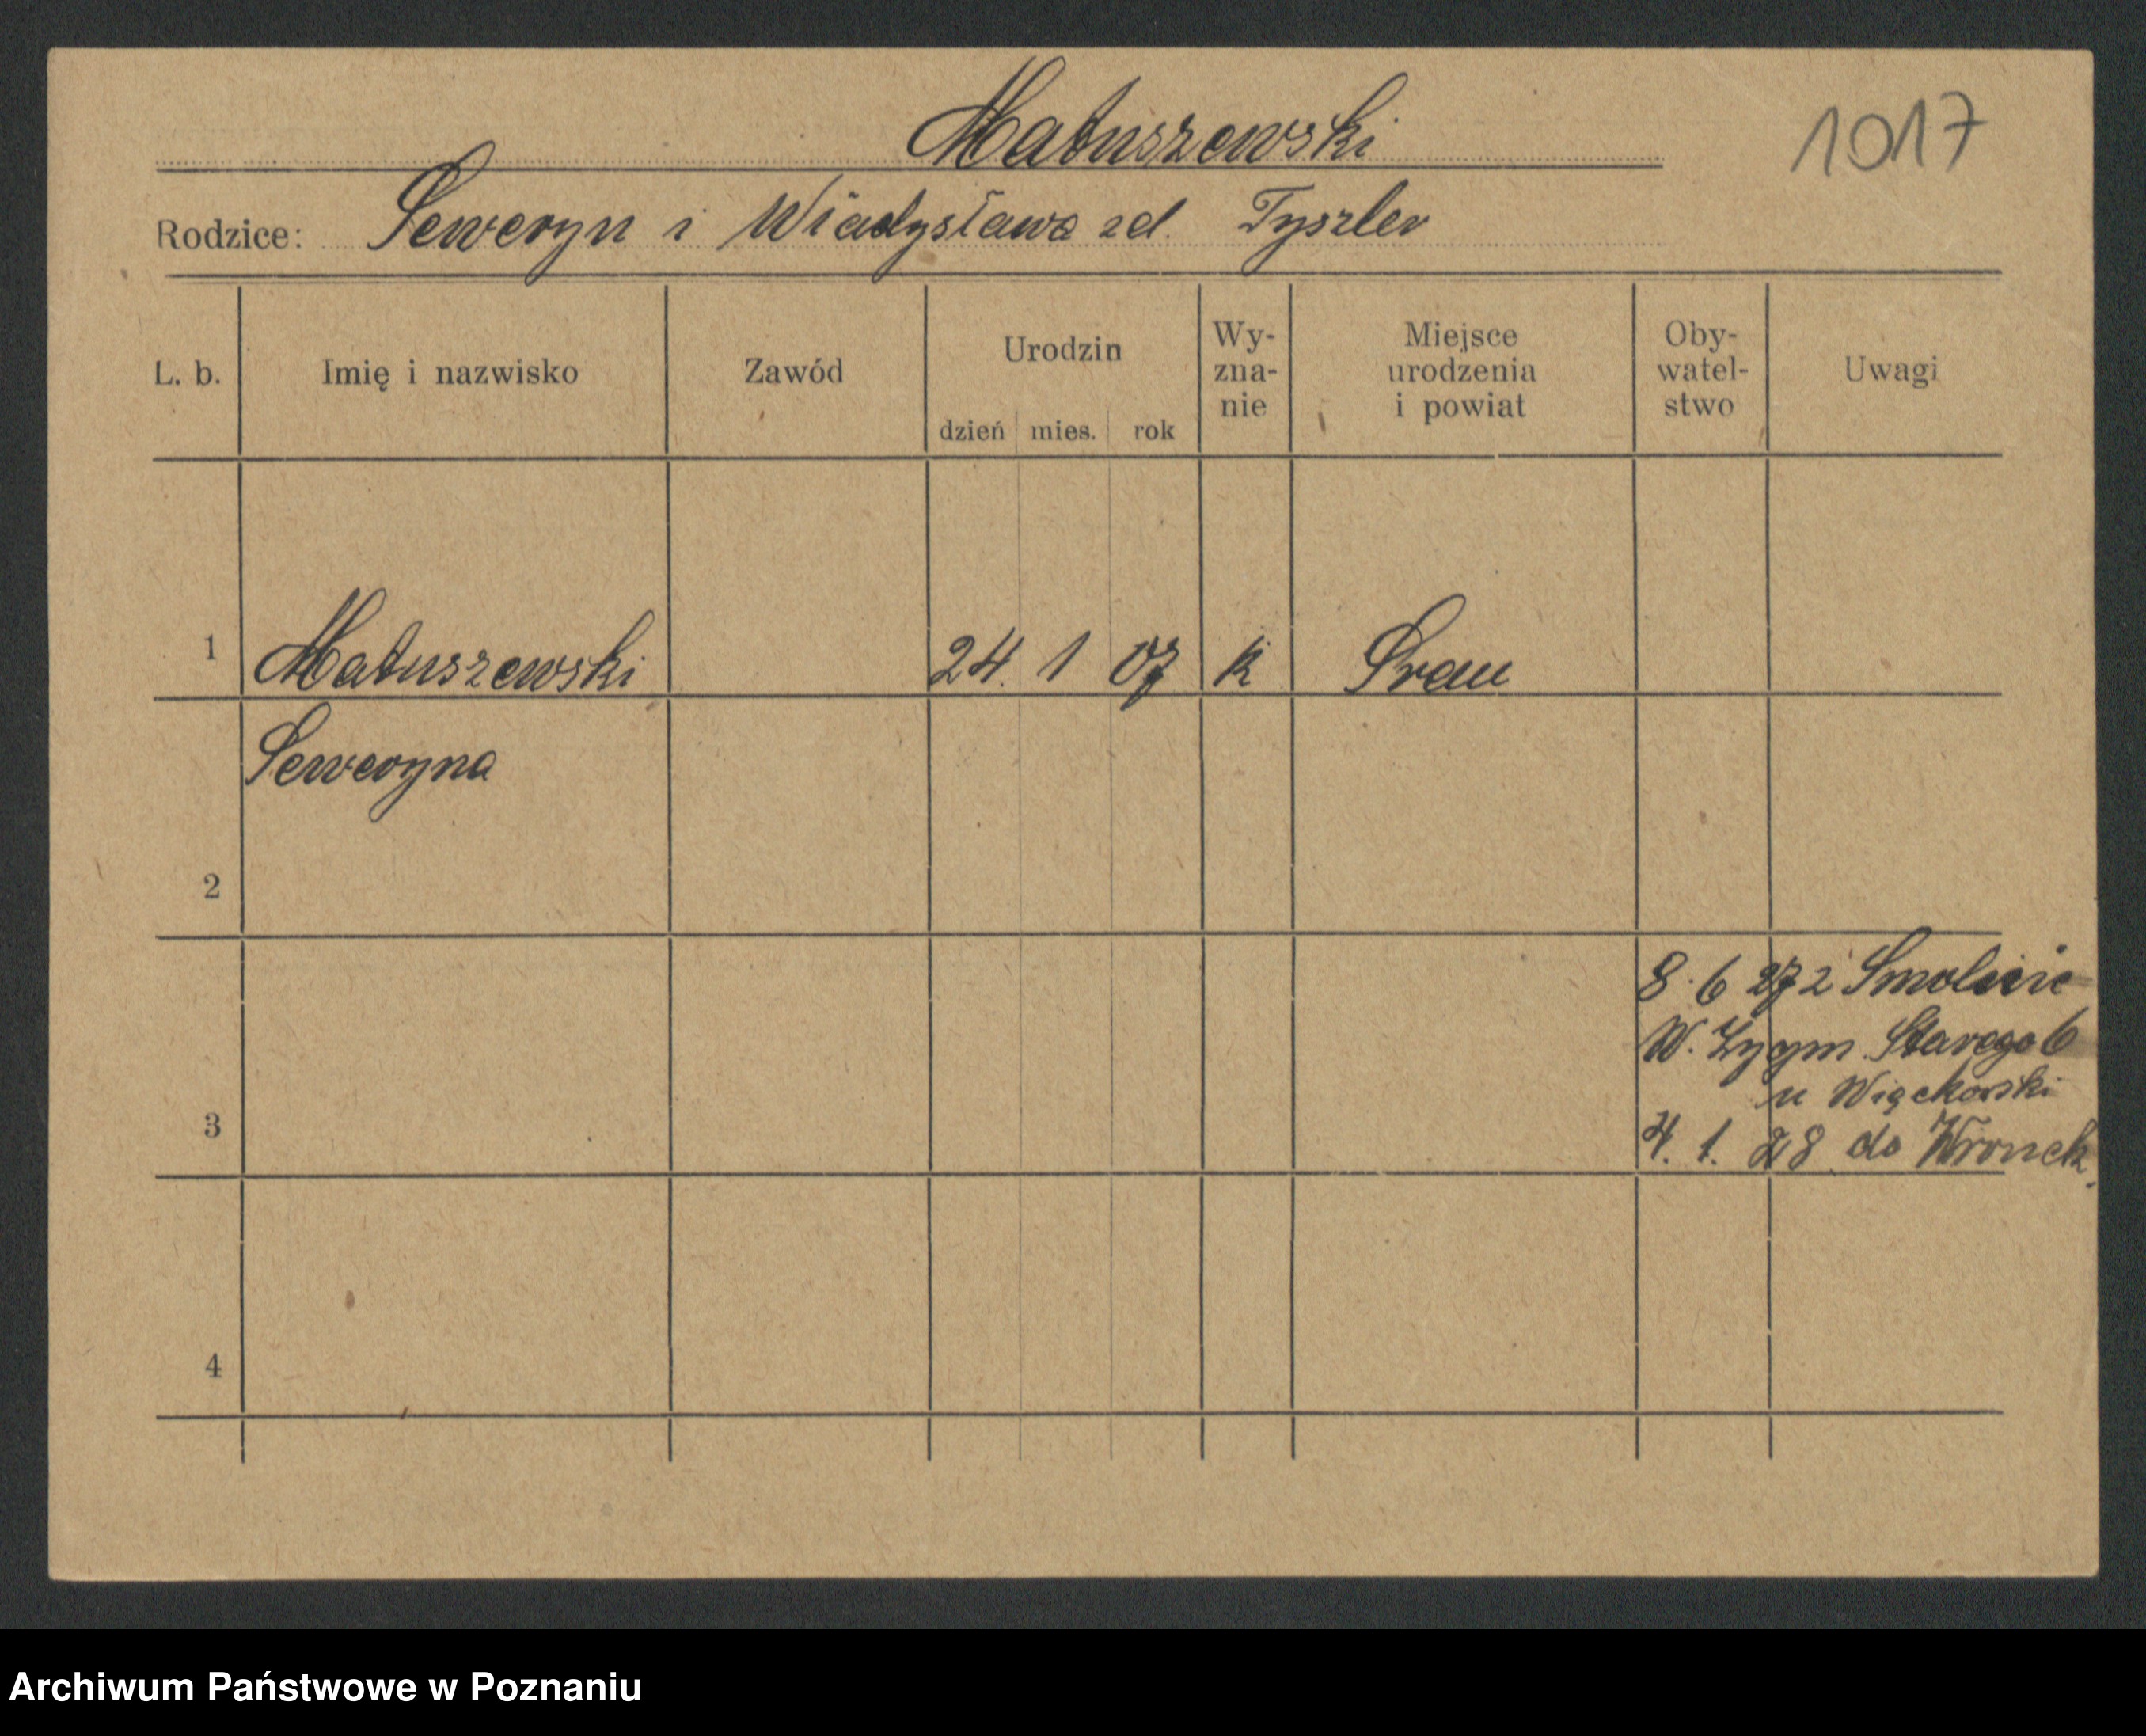 Matuszewski
1017
Rodzice: Seweryn i Władysława zd. Tyszler
L. b. Imię i nazwisko Zawód Urodzin dzień mies. rok Wy-zna-nie Miejsce urodzenia i powiat Oby-watel-stwo Uwagi
1 Matuszewski 24. 1 07 k Śrem
Seweryna
2
8. 6 27 z
W. Zygm. Starego 6
u Więckowski
3
4. 1. 28 do Wronek
4
Archiwum Państwowe w Poznaniu